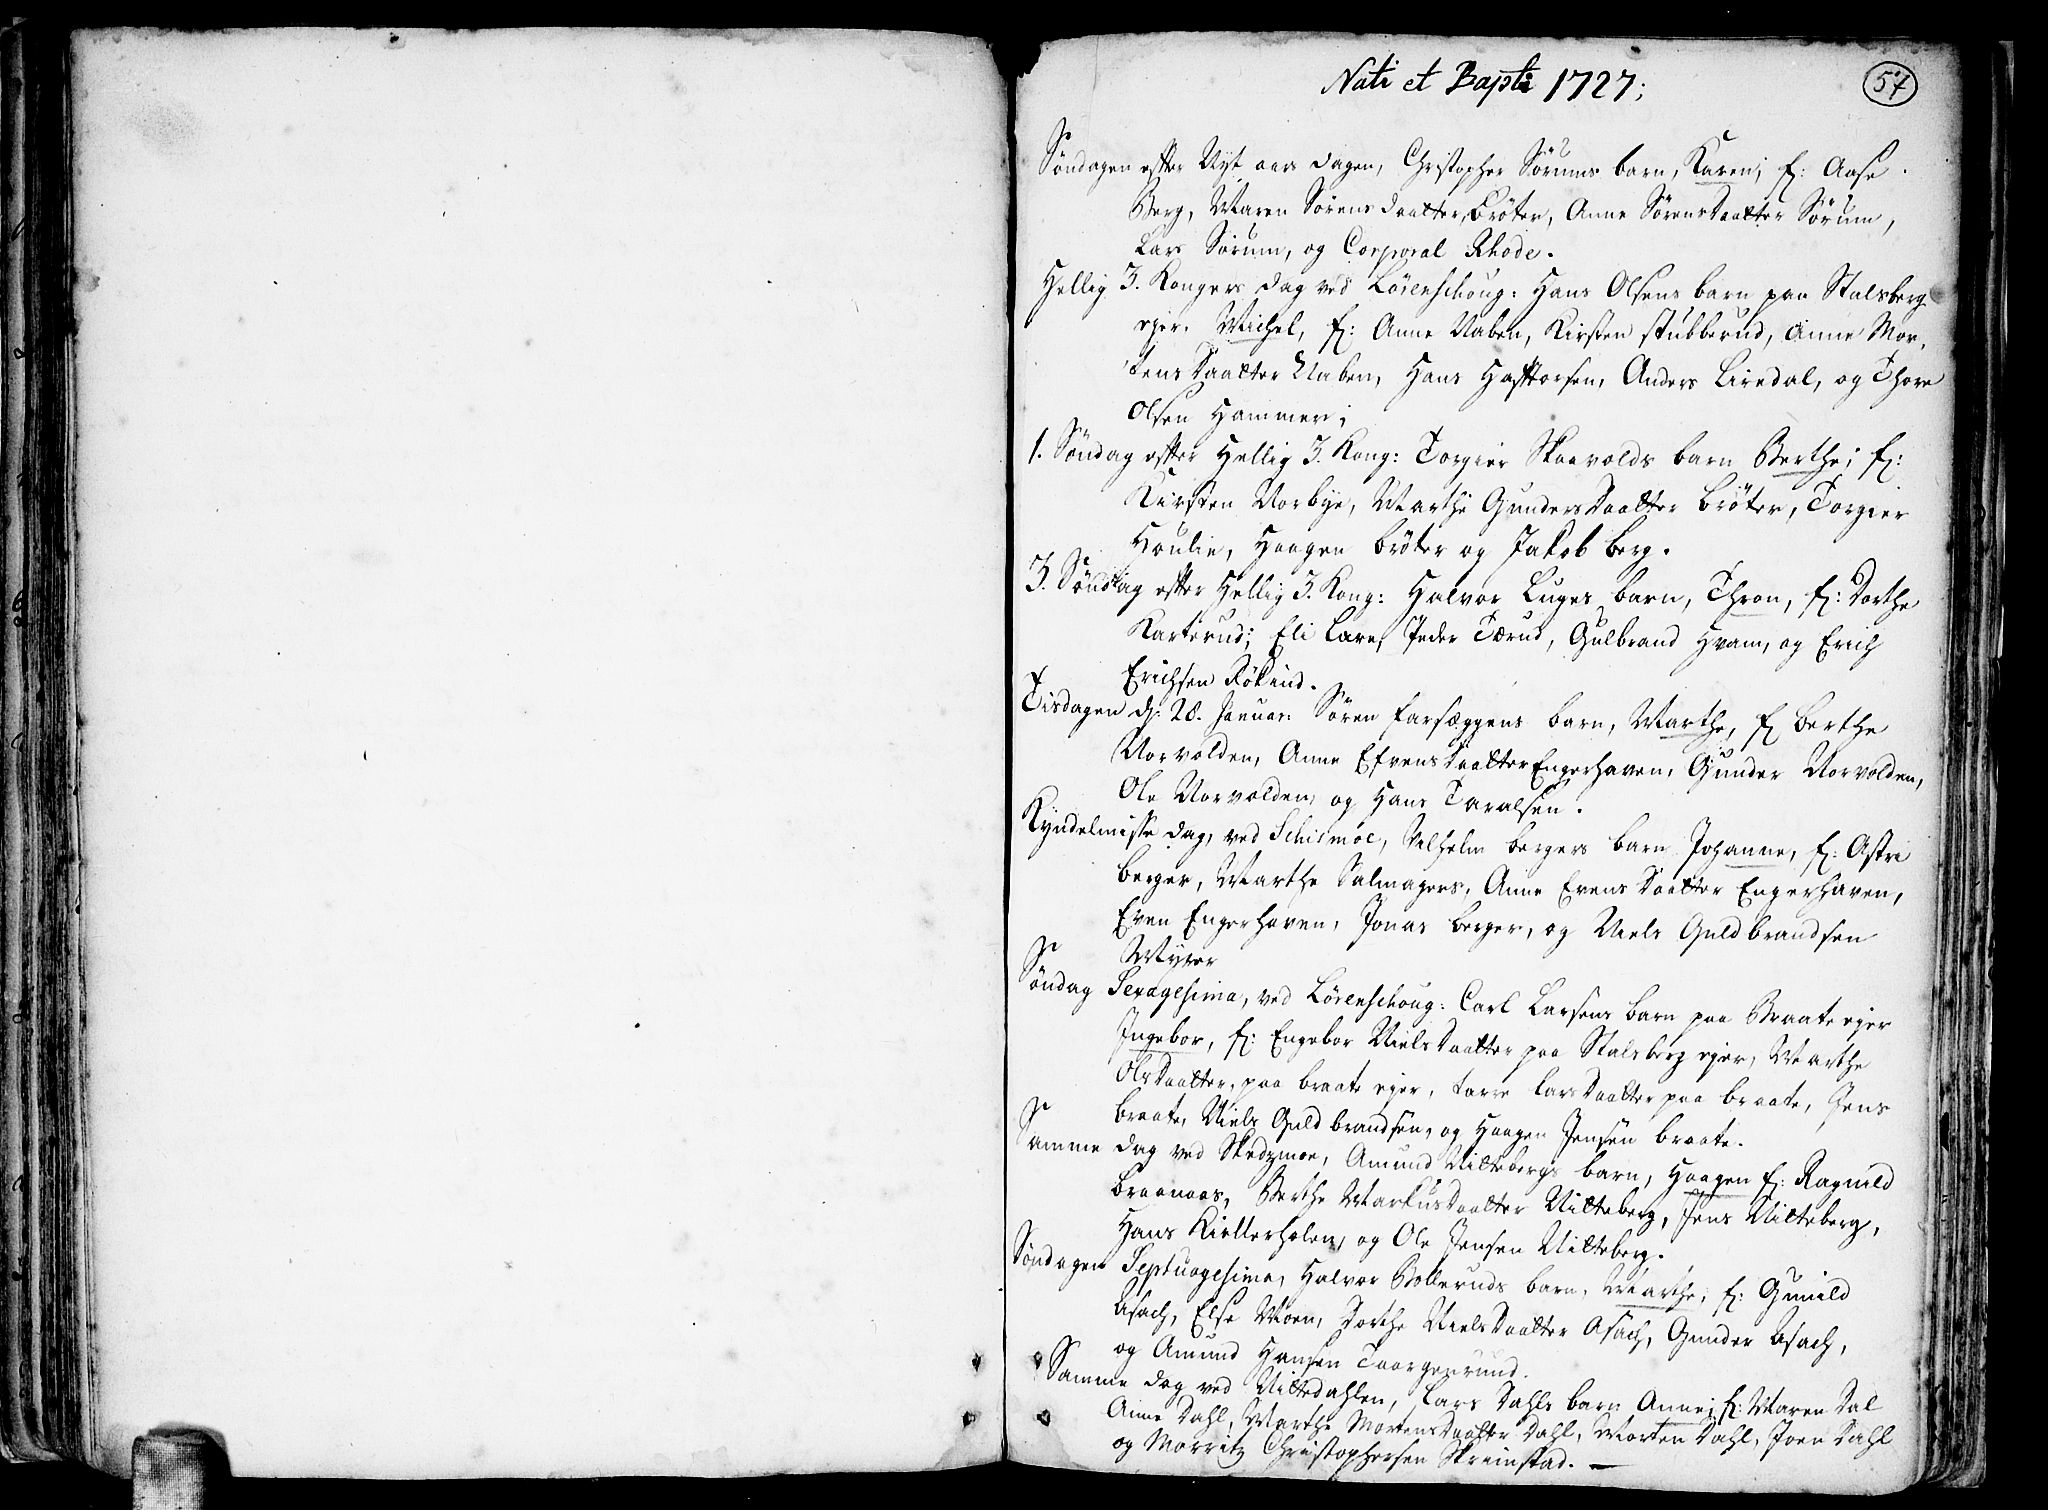 Nati et Bapti 1727;
57
Søndagen effter Nyt aars dagen, Christopher Sørums barn, Karen; f: Aase
Berg, Maren Sørensdaatter, Brøter, Anne Sørensdaatter Sørum,
Lars Sørum, og Corporal Rhode.
Hellig 3. Kongers dag ved Lörenschoug: Hans Olsens barn paa Stalsberg
eyer. Michel, f: Anne Naben, Kirsten Stubberud, Anne Mor,
tensdaatter Naben, Hans Hafftorsen, Anders Liredal, og Thore
Olsen Hammer;
1. Søndag effter Hellig 3. Kong: Torgier Skaarolds barn Berthe; f:
Kirsten Norbye, Marthe Gundersdaatter Brøter, Torgier
Houlie, Haagen Brøter og Jakob berg.
3. Søndag effter Hellig 3. Kong: Halvor Luges barn, Thron, f: Dorthe
Karterud; Eli Lare, Peder Tærud, Gulbrand Hvam, og Erich
Erichsen Rökind.
Tisdagen d: 28. Januar: Søren farseggens barn, Marthe, f Berthe
Norvolden, Anne Efvensdaatter Engerhaven, Gunder Norvolden,
Ole Norvolden, og Hans Taralsen.
Kyndelmisse dag, ved Schismöe, Velhelm bergers barn Johanne, f: Astri
berger, Marthe Salmagers, Anne Evensdaatter Engerhaven,
Even Engerhaven, Jonas berger, og Niels Guldbrandsen
Myrer
Søndag Sexagesima, ved Lörenschoug: Carl Larsens barn paa Braate eyer
Ingebor, f: Engebor Nielsdaatter paa Stalsberg eyer, Marthe
Olsdaatter, paa braate eyer, Larsdaatter paa braate, Jens
braate, Niels Guldbrandsen, og Haagen Jensen braate.
Samme dag ved Skedzmoe, Amund Nittebergs barn, Haagen f: Ragnild
braanaas, Berthe Markusdaatter Nitteberg, Jens Nitteberg,
Hans Kiellerholen, og Ole Jensen Nitteberg.
Søndagen Septuagesima, Halvor Bolleruds barn, Marthe; f: Gunild
Asach, Else Moen, Dorthe Nielsdaatter Asach, Gunder Asach,
og Amund Hansen Taargenrund.
Samme dag ved Nittedahlen, Lars Dahls barn Anne; f: Maren Dal
Anne Dahl, Marthe Mortensdaatter Dahl, Morten Dahl, Joen Dahl
og Morritz Christophersen Skrimstad.